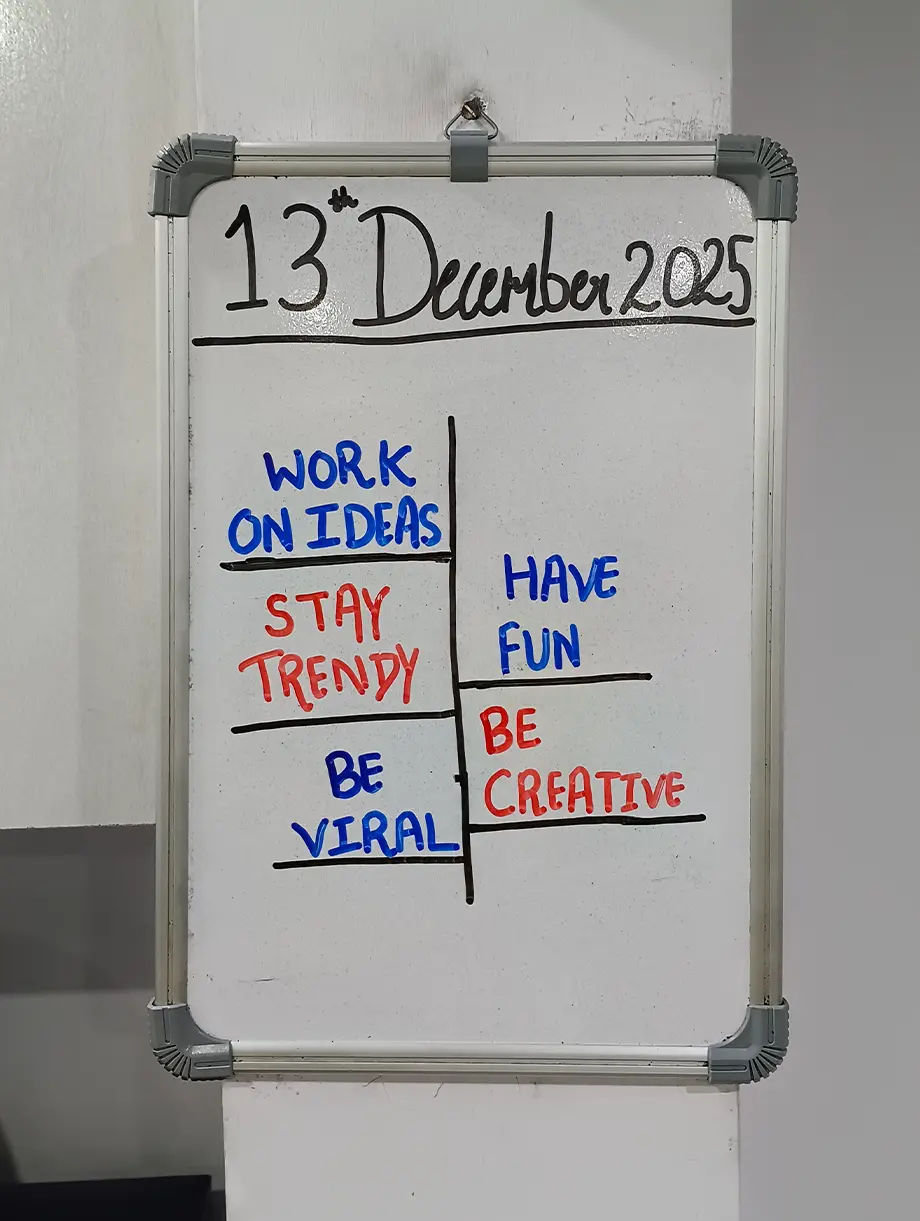 13th December 2025
WORK
ON IDEAS
STAY
TRENDY
BE
VIRAL
HAVE
FUN
BE
CREATIVE